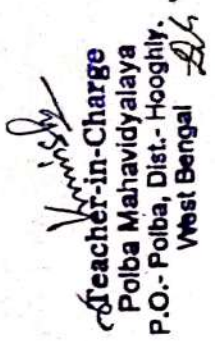 Teacher-in-Charge
Polba Mahavidyalaya
P.O.- Polba, Dist.- Hooghly.
West Bengal